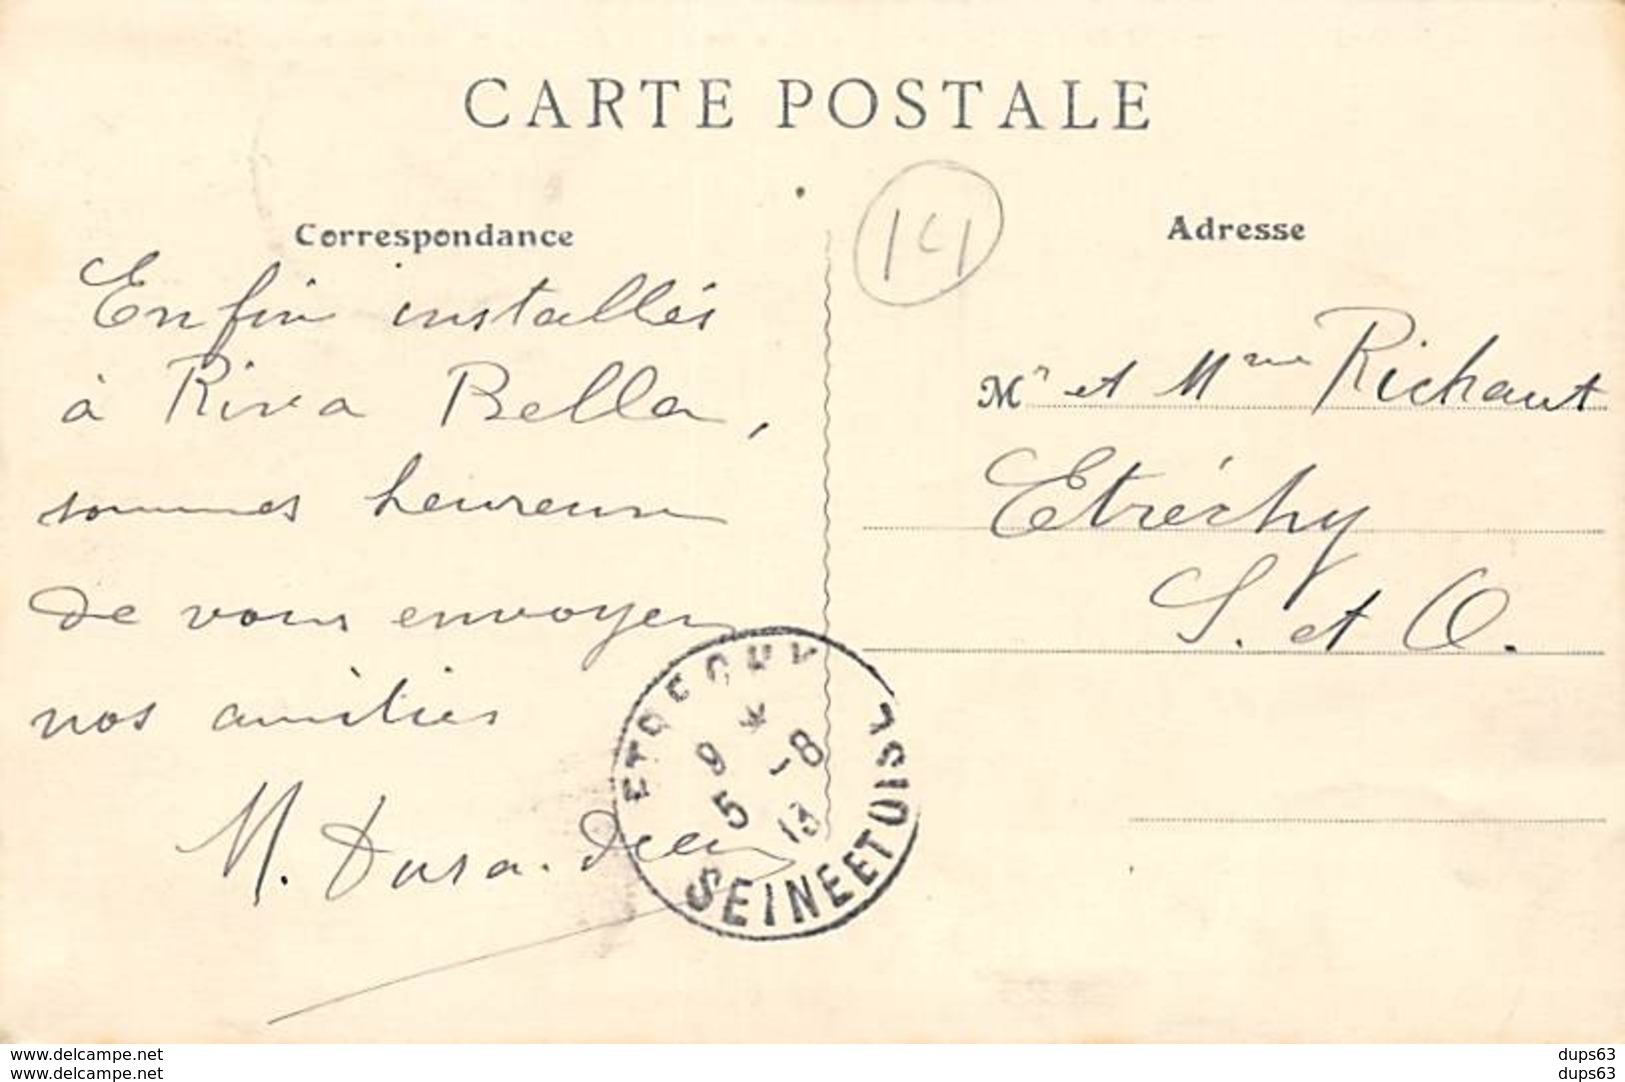 CARTE POSTALE
14
Correspondance
Enfin installés
à Riva Bella,
sommes heureux
de vous envoyer
nos amitiés
M.
Adresse
Mr et Mme Richaut
Etréchy
S. et O.
ETRECHY
9 * -8
5 13
SEINE ET OISE
www.delcampe.net
www.delcampe.net
dups63
dups63